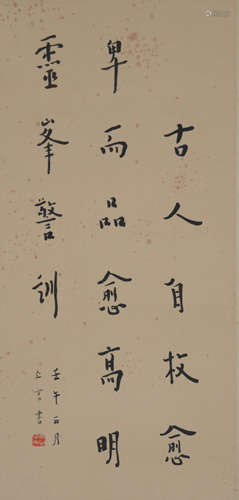 古人自牧愈
卑而品愈高明
靈峯警訓
壬午二月
亡言書